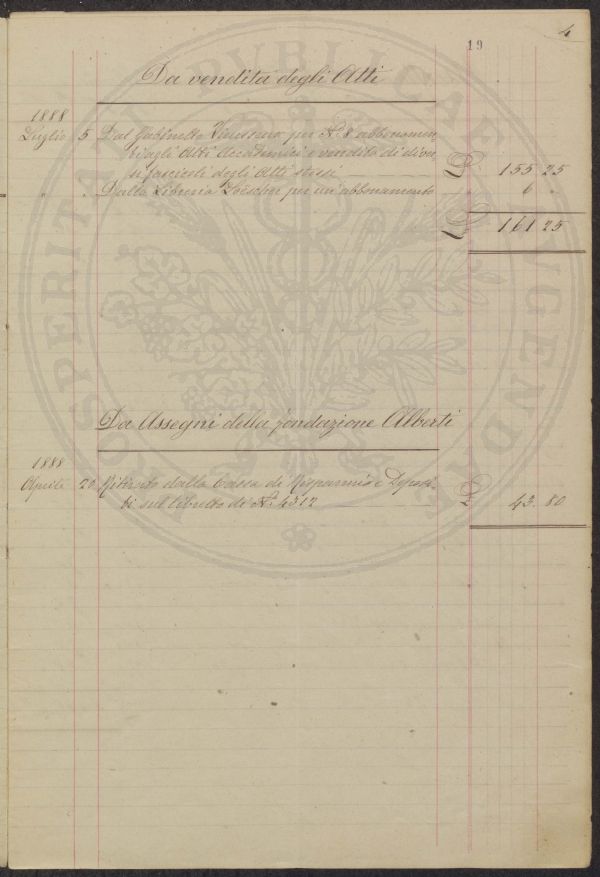 19
4
Da vendita degli Atti
1888
Luglio 5 Dal Gabinetto Vieusseux per N. 8 abbonamen
ti agli Atti Accademici e vendita di diver
si fascicoli degli Atti stessi £ 155 25
" " Dalla Libreria Loescher per un' abbonamento " 6 "
£ 161 25
Da Assegni della fondazione Alberti
1888
Aprile 20 Ritirato dalla Cassa di Risparmio e Deposi
ti sul libretto di N. 4312 £ 43. 80
PROSPERITATI PUBLICAE AUGENDAE